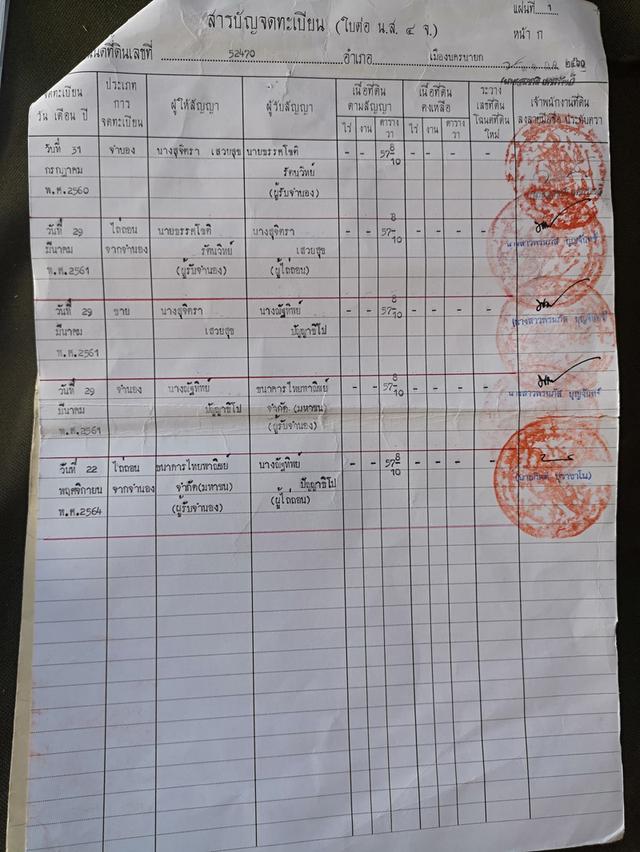 สารบัญจดทะเบียน (ใบต่อ น.ส. ๔ จ.)
แผ่นที่ 1
หน้า ก
ที่ดินเลขที่ 52470 อำเภอ เมืองนครนายก
จดทะเบียน วัน เดือน ปี
ประเภท การ จดทะเบียน
ผู้ให้สัญญา
ผู้รับสัญญา
เนื้อที่ดิน ตามสัญญา
ไร่ งาน ตาราง วา
เนื้อที่ดิน คงเหลือ
ไร่ งาน ตาราง วา
ระวาง เลขที่ดิน โฉนดที่ดิน ใหม่
เจ้าพนักงานที่ดิน ลงลายมือชื่อ ประทับตรา
วันที่ 31 จำนอง นางสุจิตรา เสวยสุข นายบรรดโชติ - - 57 8/10 - - - -
กรกฎาคม รัตนวิทย์
พ.ศ.2560 (ผู้รับจำนอง)
วันที่ 29 ไถ่ถอน นายบรรดโชติ นางสุจิตรา - - 57 8/10 - - - -
มีนาคม จากจำนอง รัตนวิทย์ เสวยสุข
พ.ศ.2561 (ผู้รับจำนอง) (ผู้ไถ่ถอน)
วันที่ 29 ขาย นางสุจิตรา นางณัฐทิพย์ - - 57 8/10 - - - -
มีนาคม เสวยสุข ปัญญาธิโป
พ.ศ.2561
วันที่ 29 จำนอง นางณัฐทิพย์ ธนาคารไทยพาณิชย์ - - 57 8/10 - - - -
มีนาคม ปัญญาธิโป จำกัด (มหาชน)
พ.ศ.2561 (ผู้รับจำนอง)
วันที่ 22 ไถ่ถอน ธนาคารไทยพาณิชย์ นางณัฐทิพย์ - - 57 8/10 - - - -
พฤศจิกายน จากจำนอง จำกัด(มหาชน) ปัญญาธิโป
พ.ศ.2564 (ผู้รับจำนอง) (ผู้ไถ่ถอน)